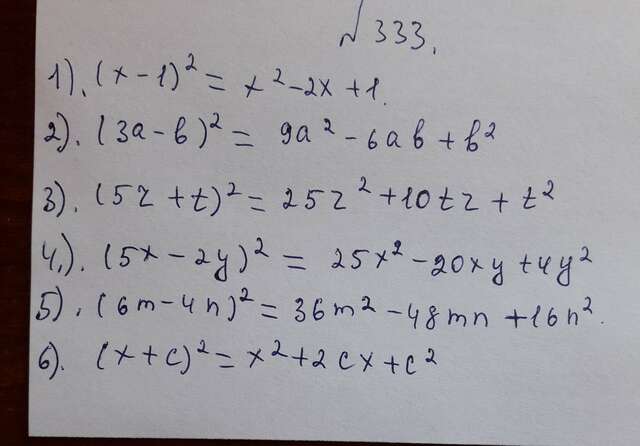 № 333.
1). (x - 1)² = x² - 2x + 1.
2). (3a - b)² = 9a² - 6ab + b²
3). (5z + t)² = 25z² + 10tz + t²
4). (5x - 2y)² = 25x² - 20xy + 4y²
5). (6m - 4n)² = 36m² - 48mn + 16n².
6). (x + c)² = x² + 2cx + c²